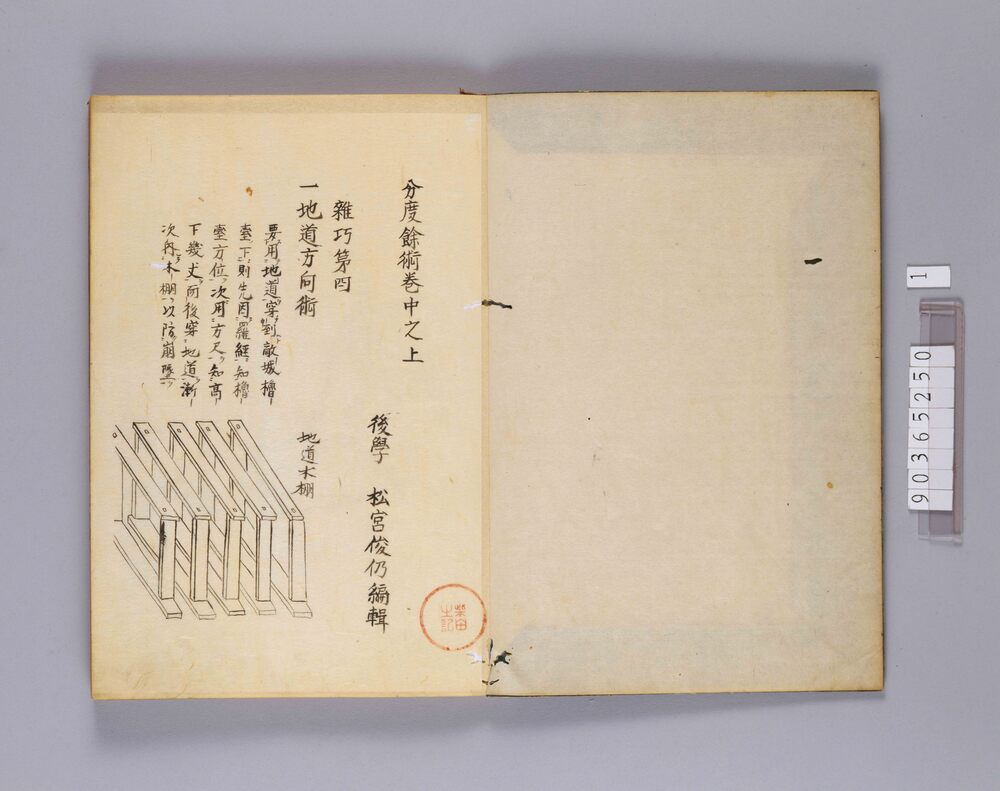 分度餘術巻中之上
後學 松宮俊仍編輯
雜巧第四
一地道方向術
要用地道穿到敵城櫓
臺下則先因羅經知櫓
臺方位次用方尺知高
下幾丈而後穿地道漸
次內木棚以防崩墜
地道木棚
1
90365250